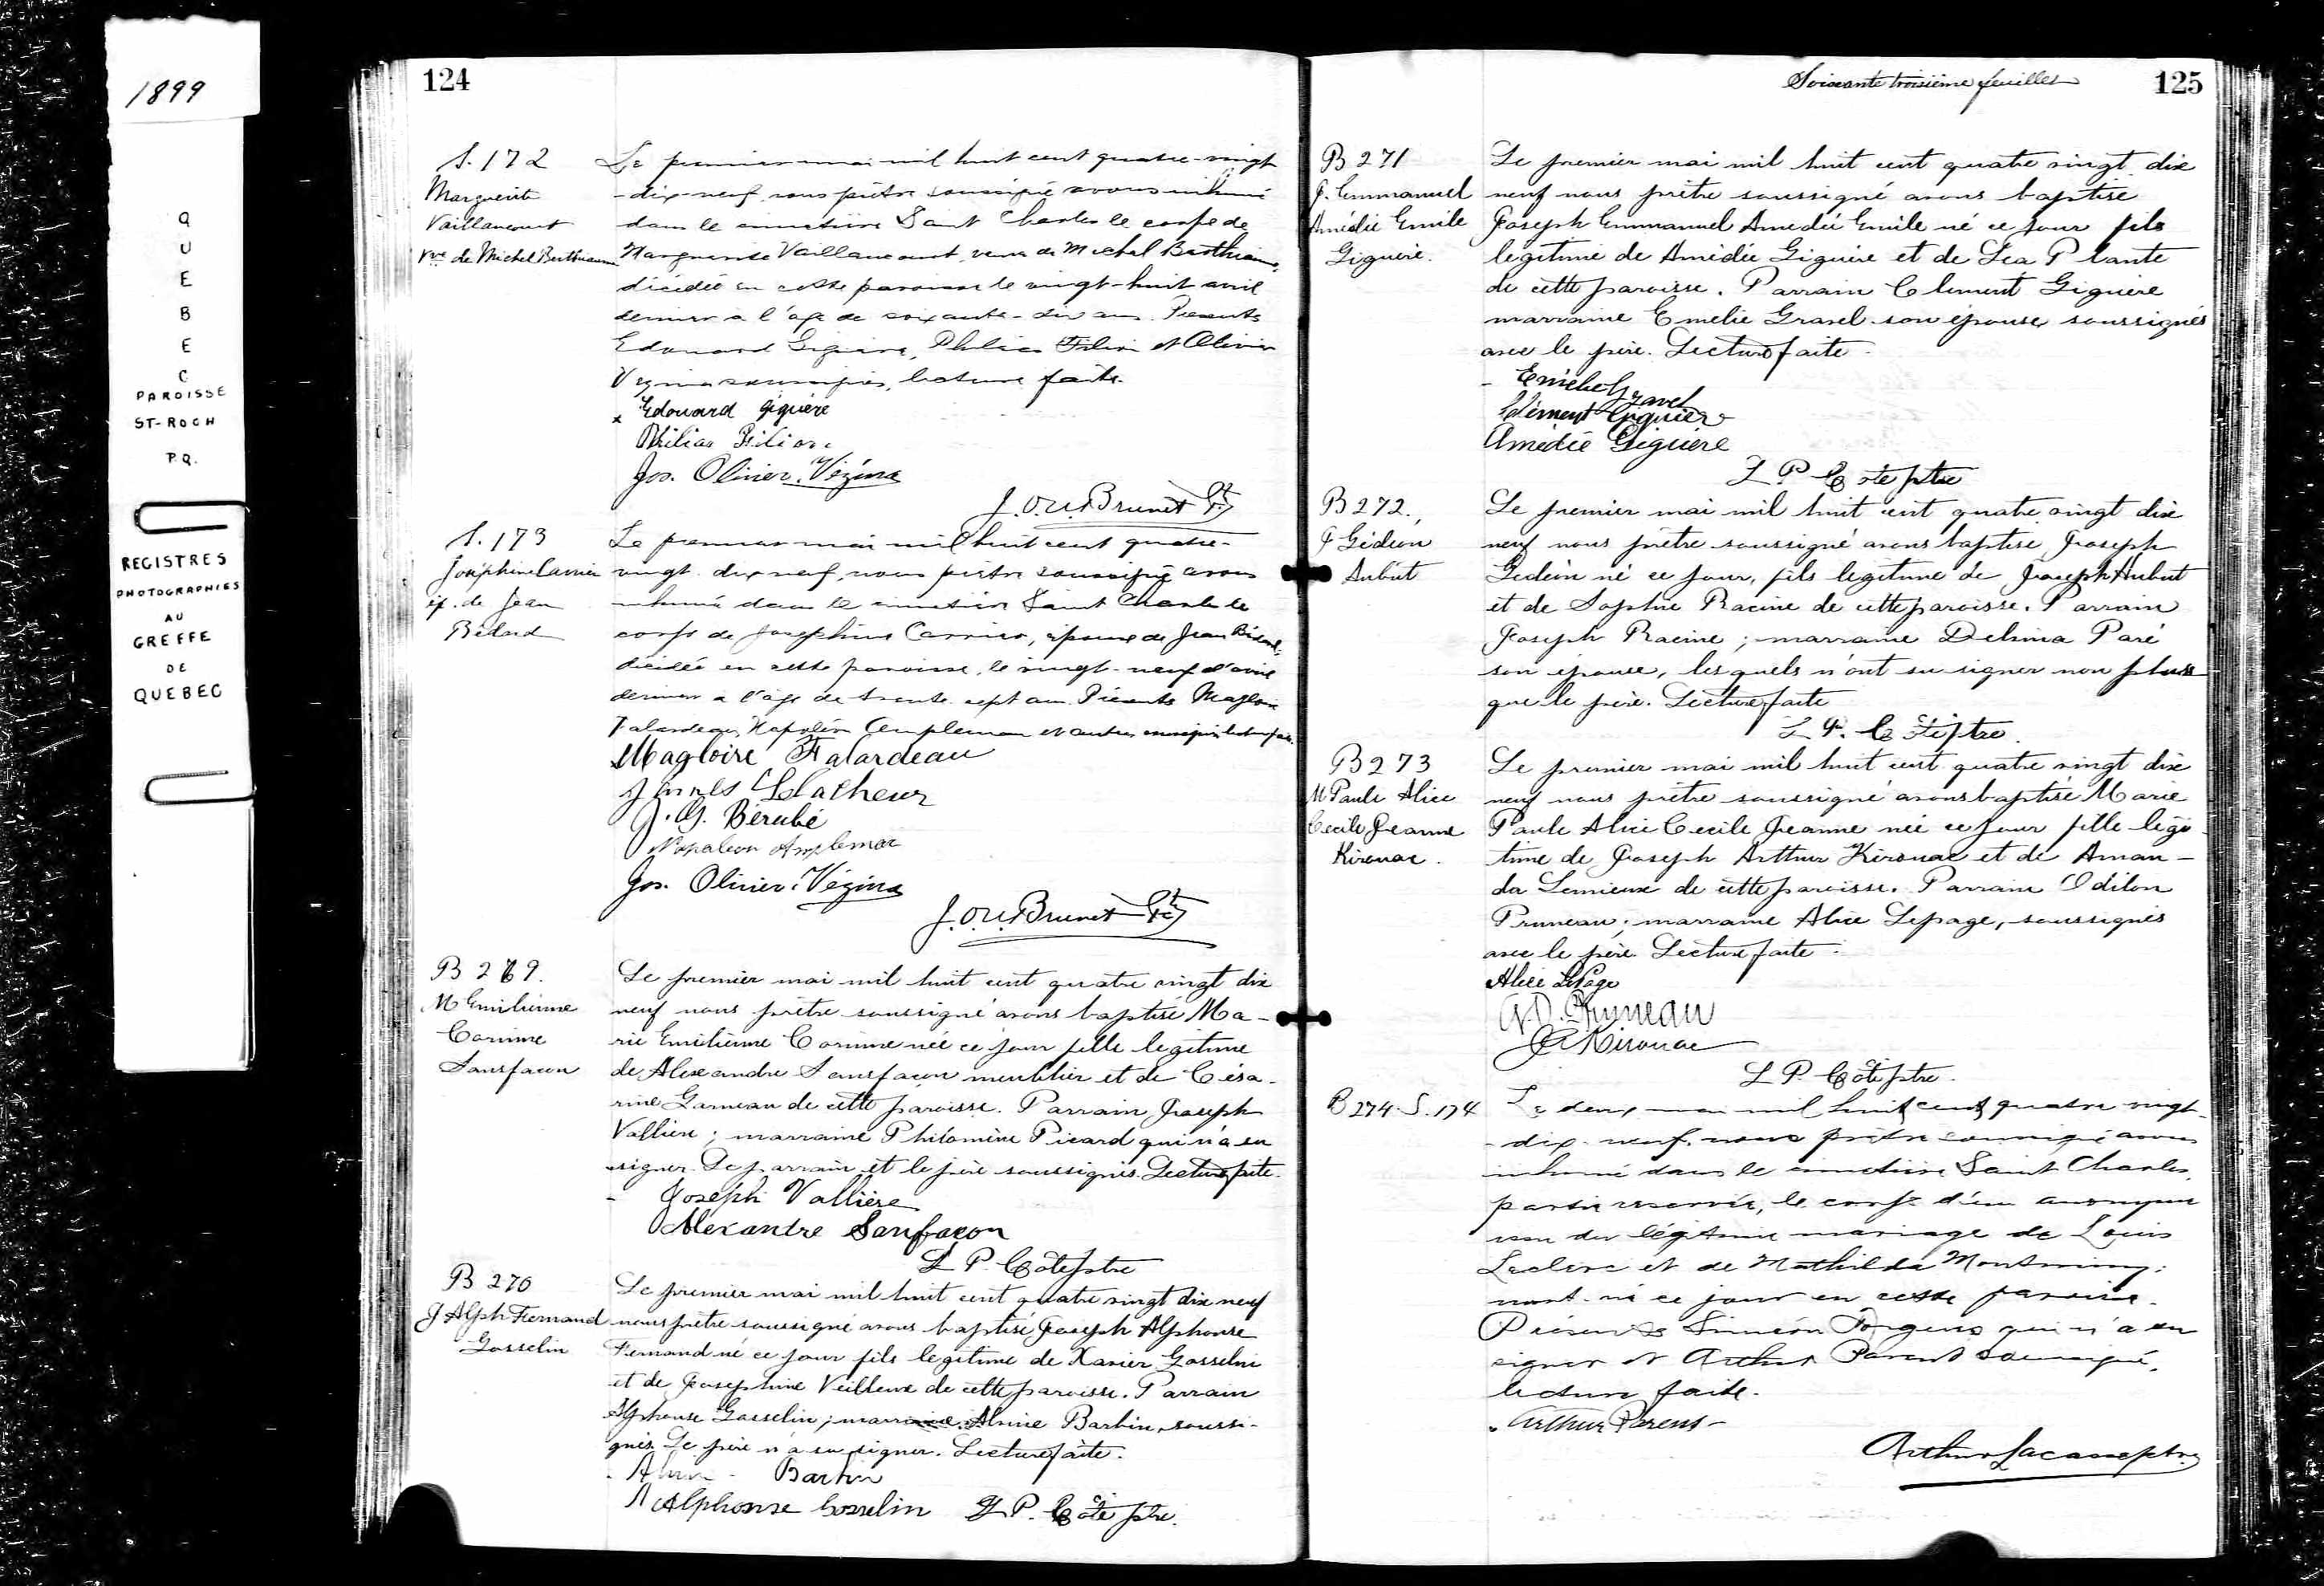 1899
QUEBEC
PAROISSE
ST-ROCH
P.Q.
REGISTRES
PHOTOGRAPHIES
AU
GREFFE
DE
QUEBEC
124
S. 172
Marguerite
Vaillancourt
Vve de Michel Berthiaume
Le premier mai mil huit cent quatre-vingt
-dix-neuf, nous prêtre soussigné avons inhumé
dans le cimetière Saint Charles le corps de
Marguerite Vaillancourt, veuve de Michel Berthiaume,
décédée en cette paroisse le vingt-huit avril
dernier à l'âge de soixante-dix ans. Présents
Edouard Giguère, Philias Filion et Olivier
Vezina soussignés, lecture faite.
Edouard Giguère
Philias Filion
Jos. Olivier Vézina
J.O.U. Brunet Ptre
S. 173
Joséphine Carrier
ép. de Jean
Bédard
Le premier mai mil huit cent quatre-
vingt-dix neuf, nous prêtre soussigné avons
inhumé dans le cimetière Saint Charles le
corps de Joséphine Carrier, épouse de Jean Bédard,
décédée en cette paroisse, le vingt-neuf d'avril
dernier à l'âge de trente-sept ans. Présents Magloire
Falardeau, Napoléon Ampleman et autres soussignés lecture faite.
Magloire Falardeau
James Lelacheur
J. G. Bérubé
Napoleon Ampleman
Jos. Olivier Vézina
J.O.U. Brunet Ptre
B 269.
M Emilienne
Corinne
Sansfacon
Le premier mai mil huit cent quatre vingt dix
neuf nous prêtre soussigné avons baptisé Ma-
rie Emilienne Corinne née ce jour fille legitime
de Alexandre Sansfaçon meublier et de Césa-
rine Garneau de cette paroisse. Parrain Joseph
Vallière; marraine Philomène Picard qui n'a su
signer. Le parrain et le père soussignés. Lecture faite.
Joseph Vallière
Alexandre Sanfaçon
L P. Côté ptre
B 270
J Alph Fernand
Gosselin
Le premier mai mil huit cent quatre vingt dix neuf
nous prêtre soussigné avons baptisé Joseph Alphonse
Fernand né ce jour fils legitime de Xavier Gosselin
et de Josephine Veilleux de cette paroisse. Parrain
Alphonse Gosselin; marraine Almie Barbin, soussi-
gnés. Le père n'a su signer. Lecture faite.
Barbin
Alphonse Gosselin L P. Côté ptre.
Soixante troisième feuillet
125
B 271
J. Emmanuel
Amédée Emile
Giguère.
Le premier mai mil huit cent quatre vingt dix
neuf nous prêtre soussigné avons baptisé
Joseph Emmanuel Amedée Emile né ce jour fils
legitime de Amédée Giguère et de Lea Plante
de cette paroisse. Parrain Clement Giguère
marraine Emelie Gravel son épouse, soussignés
avec le père. Lecture faite.
Emélie Gravel
Clément Giguère
Amédée Giguère
L P Côté ptre
B 272.
J Gédéon
Aubut
Le premier mai mil huit cent quatre vingt dix
neuf nous prêtre soussigné avons baptisé Joseph
Gedéon né ce jour, fils legitime de Joseph Aubut
et de Sophie Racine de cette paroisse. Parrain
Joseph Racine; marraine Delvina Paré
son épouse, lesquels n'ont su signer non plus
que le père. Lecture faite
L P. Côté ptre.
B 273
M Paule Alice
Cecile Jeanne
Kirouac.
Le premier mai mil huit cent quatre vingt dix
neuf nous prêtre soussigné avons baptisé Marie
Paule Alice Cecile Jeanne née ce jour fille légi-
time de Joseph Arthur Kirouac et de Aman-
da Lemieux de cette paroisse. Parrain Odilon
Pruneau; marraine Alice Lepage, soussignés
avec le père. Lecture faite.
Alice LePage
Pruneau
Kirouac
L P. Côté ptre.
B 274. S. 174
Le deux mai mil huit cent quatre vingt-
-dix-neuf, nous prêtre soussigné avons
inhumé dans le cimetière Saint Charles,
partie réservée, le corps d'un anonyme
issu du légitime mariage de Louis
Leclerc et de Mathilda Montminy:
mort-né ce jour en cette paroisse.
Présents Siméon Forgues qui n'a su
signer et Arthur Parent soussigné,
lecture faite.
Arthur Parent
Arthur Lacasse ptre